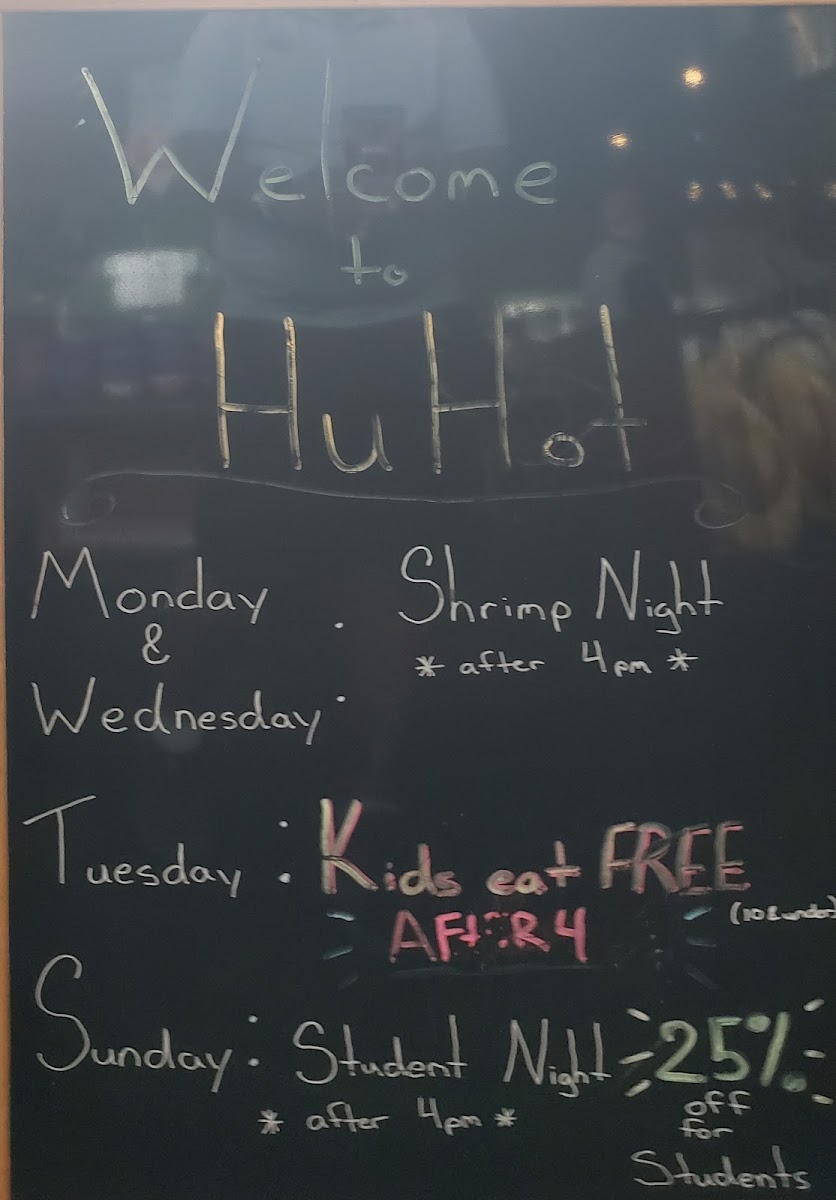 Welcome
to
HuHot
Monday
&
Wednesday
: Shrimp Night
* after 4pm *
Tuesday : Kids eat FREE
AFtER 4
(10 & under)
Sunday : Student Night 25%
* after 4pm *
off
for
Students